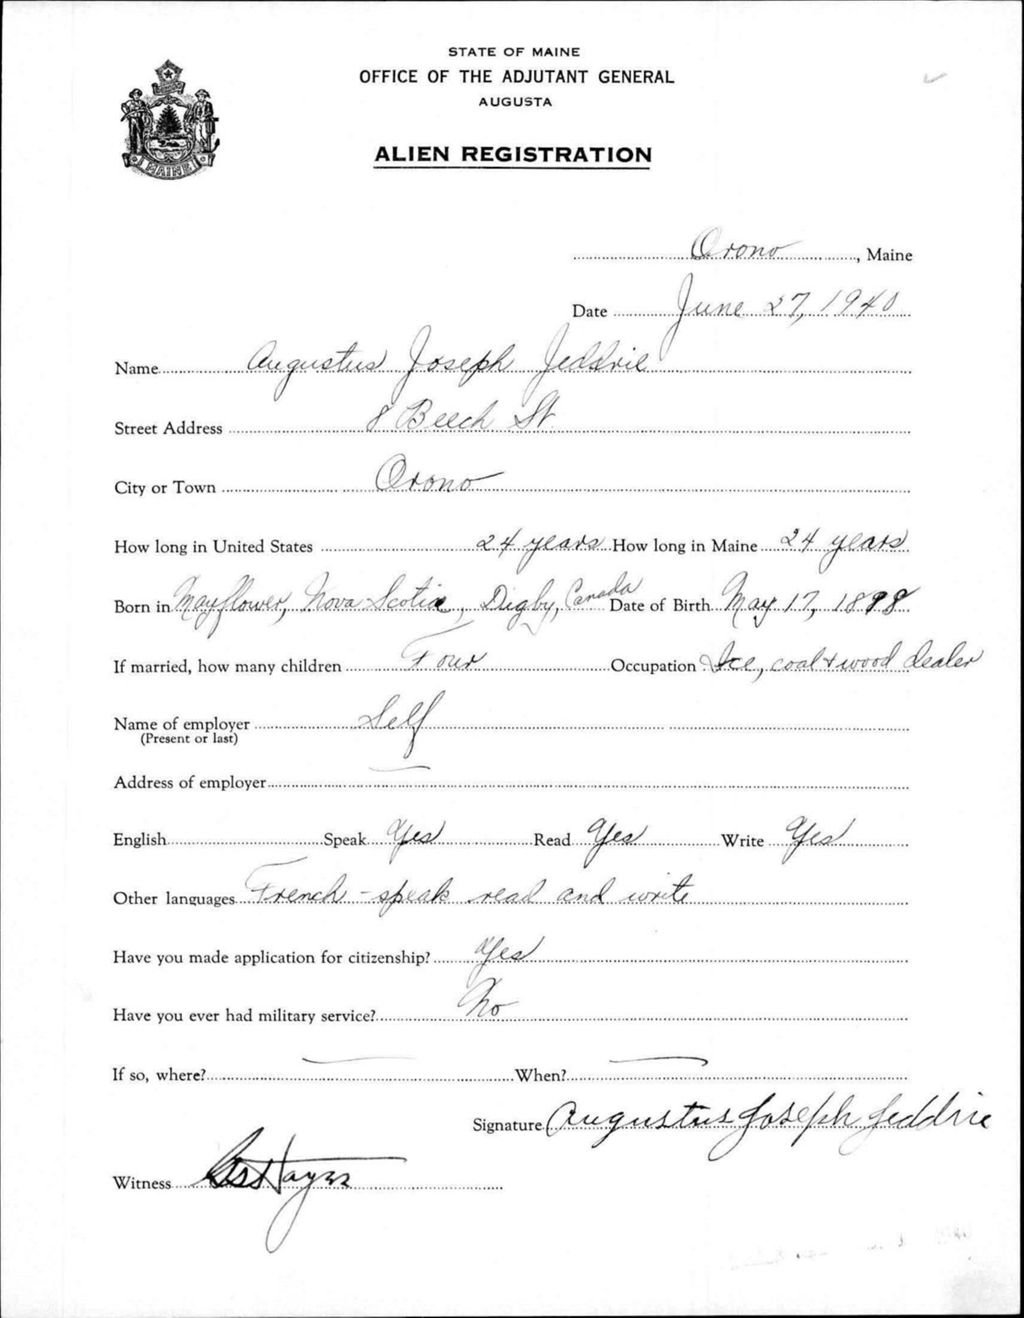 STATE OF MAINE
OFFICE OF THE ADJUTANT GENERAL
AUGUSTA
ALIEN REGISTRATION
MAINE
Orono, Maine
Date June 27, 1940
Name Augustus Joseph Jeddrie
Street Address 8 Beech St
City or Town Orono
How long in United States 24 years How long in Maine 24 years
Born in Mayflower, Nova Scotia, Digby, Canada Date of Birth May 17, 1898
If married, how many children Four Occupation Ice, coal & wood dealer
Name of employer Self
(Present or last)
Address of employer —
English Speak Yes Read Yes Write Yes
Other languages French - speak read and write
Have you made application for citizenship? Yes
Have you ever had military service? No
If so, where? — When? —
Signature Augustus Joseph Jeddrie
Witness